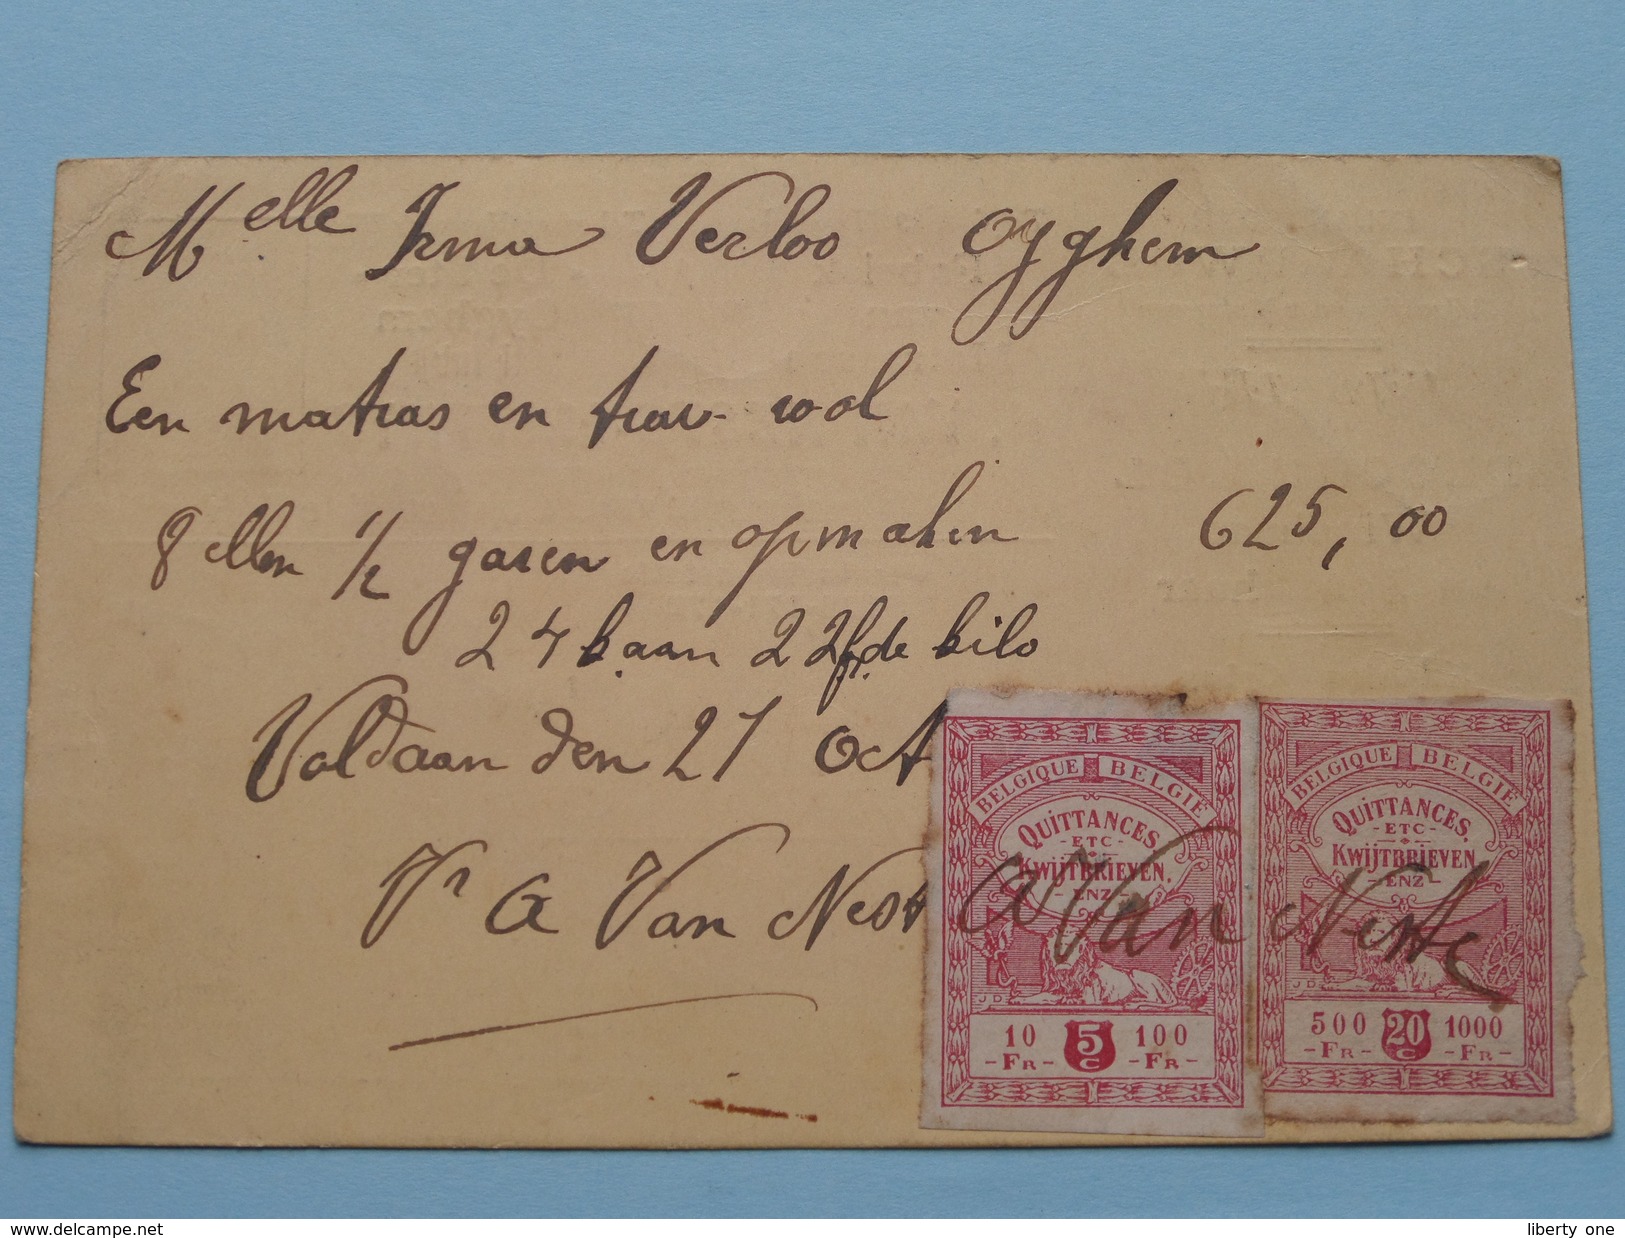 Melle Irma Verloo Oyghem
Een matras en trav. wol
8 ellen 1/2 garen en opmaken 625,00
24 k aan 22 fr. de kilo
Voldaan den 27 Oct
Vr A Van Nest
A Van Neste
BELGIQUE BELGIË
QUITTANCES,
-ETC-
KWIJTBRIEVEN.
-ENZ-
J D
10 5 100
-FR- C -FR-
BELGIQUE BELGIË
QUITTANCES,
-ETC-
KWIJTBRIEVEN
-ENZ-
J D
500 20 1000
-FR- C -FR-
www.delcampe.net liberty_one